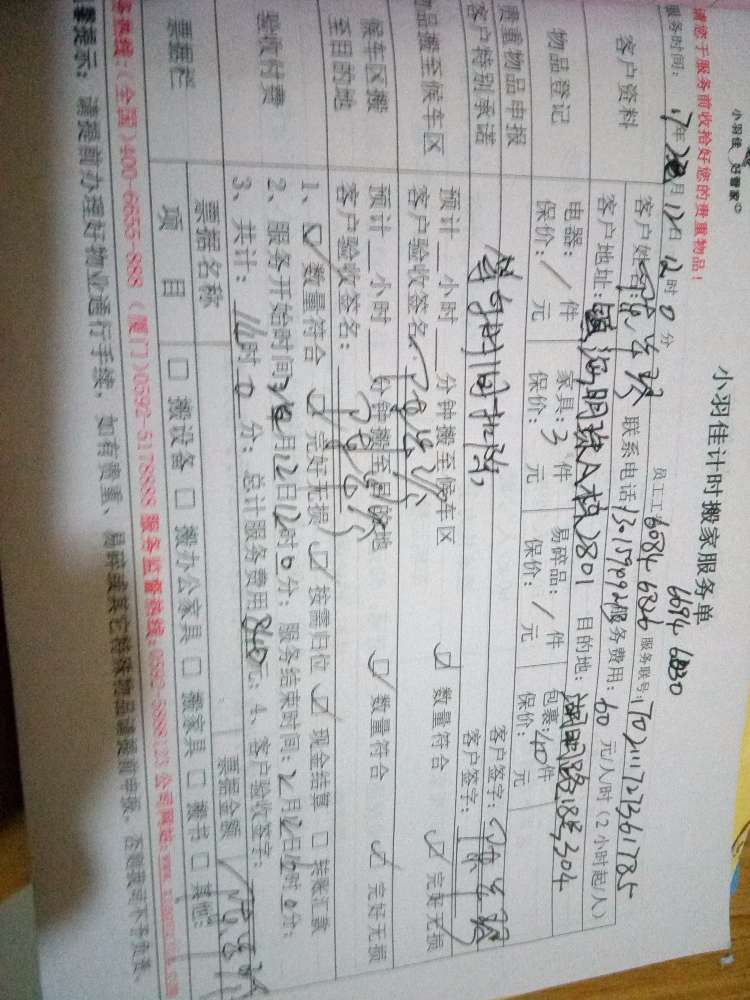 小羽佳 好管家
小羽佳计时搬家服务单
请您于服务前收拾好您的贵重物品!
6694 6830
员工工 6084 6826 服务联号:
服务时间: 17年 2月12日12时0分
客户资料
客户姓名: 联系电话 服务费用: 60元/人/时(2小时起/人)
客户地址: 海明珠A栋2801 目的地: 湖明路 304
物品登记
电器: / 件 家具: 3 件 易碎品: / 件 包裹: 40件
保价: 元 保价: 元 保价: 元 保价: 元
贵重物品申报 客户签字:
客户特别承诺 客户签字:
物品搬至候车区
预计__小时__分钟搬至候车区 ☑ 数量符合 ☑ 完好无损
客户验收签名:
候车区搬至目的地
预计__小时__分钟搬至目的地 ☑ 数量符合 ☑ 完好无损
客户验收签名:
验收付费
1、☑ 数量符合 ☑ 完好无损 ☑ 按需归位 ☑ 现金结算 □ 转账汇款
2、服务开始时间: 月12日12时0分; 服务结束时间: 2月12日16时0分;
3、共计: 时0分; 总计服务费用: 元; 4、客户验收签字:
票据栏
票据名称 票据金额
项目 □ 搬设备 □ 搬办公家具 □ 搬家具 □ 搬书 □ 其他:
务热线:(全国)400-6655-888 (厦门)0592-5178888 服务监督热线:0592-5888123 公司网站:
馨提示: 请提前办理好物业通行手续, 如有贵重、易碎或其它特殊物品请提前申报, 否则我司不予负责。